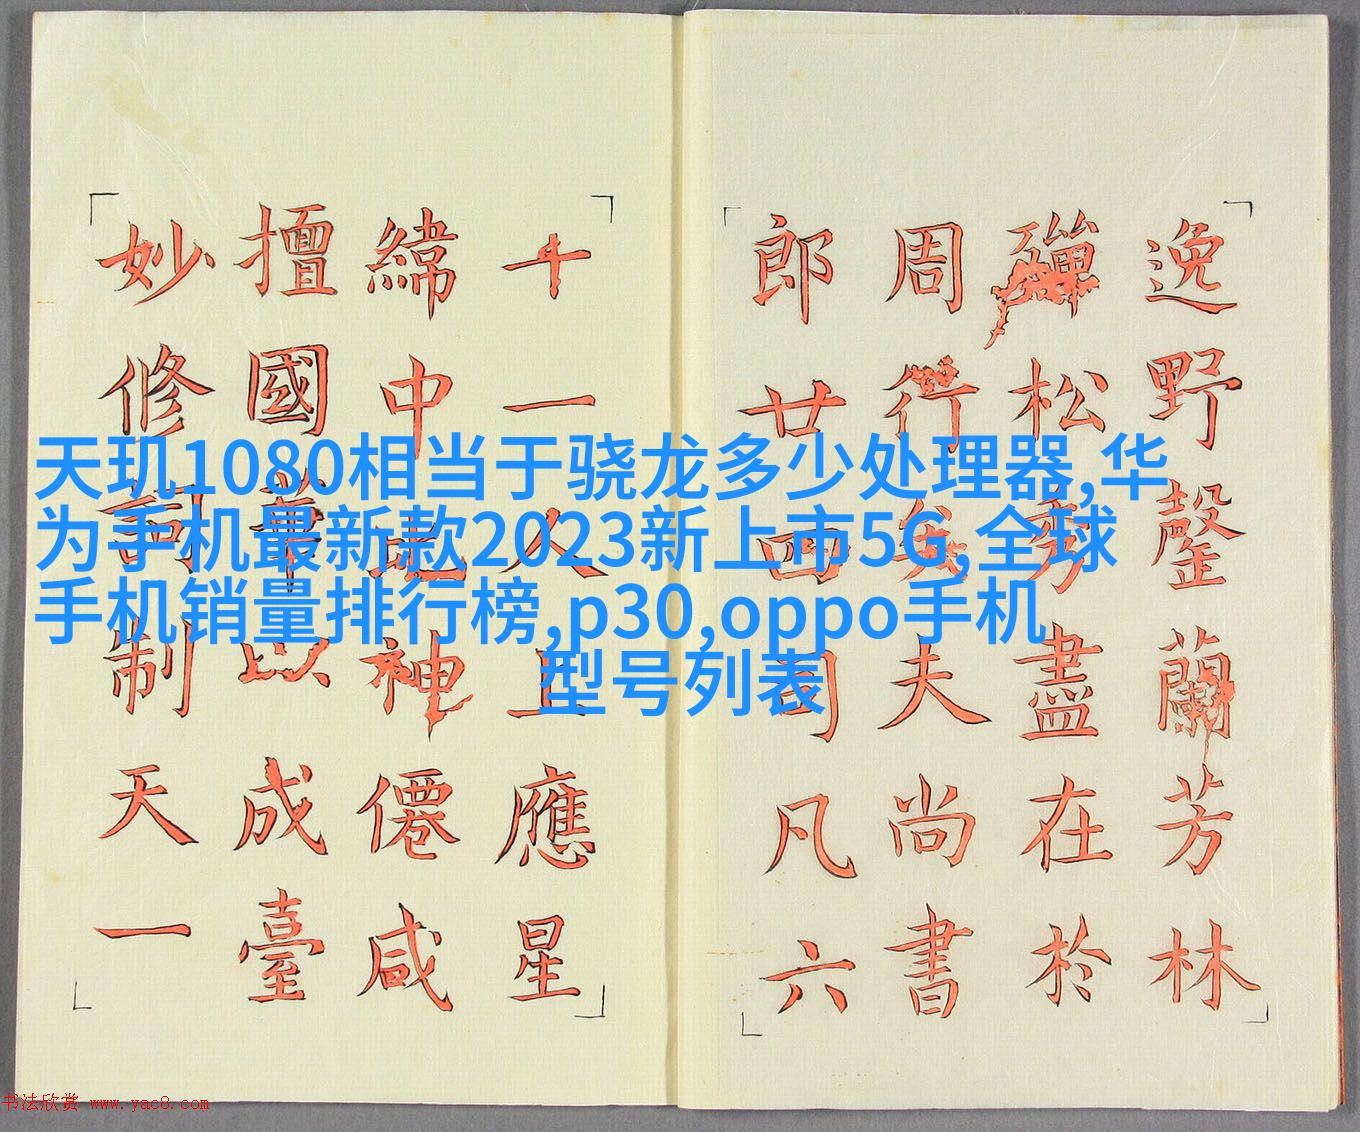 天玑1080相当于骁龙多少处理器,华
为手机最新款2023新上市5G,全球
手机销量排行榜,p30,oppo手机
型号列表
逸野蘭芳林
殫松盡在於
周行矣夫尚書
郎廿四司凡六
十一人上應星
緯中神僊咸
擅國以成臺
妙修詞制天一
书法欣赏 www.yac8.com